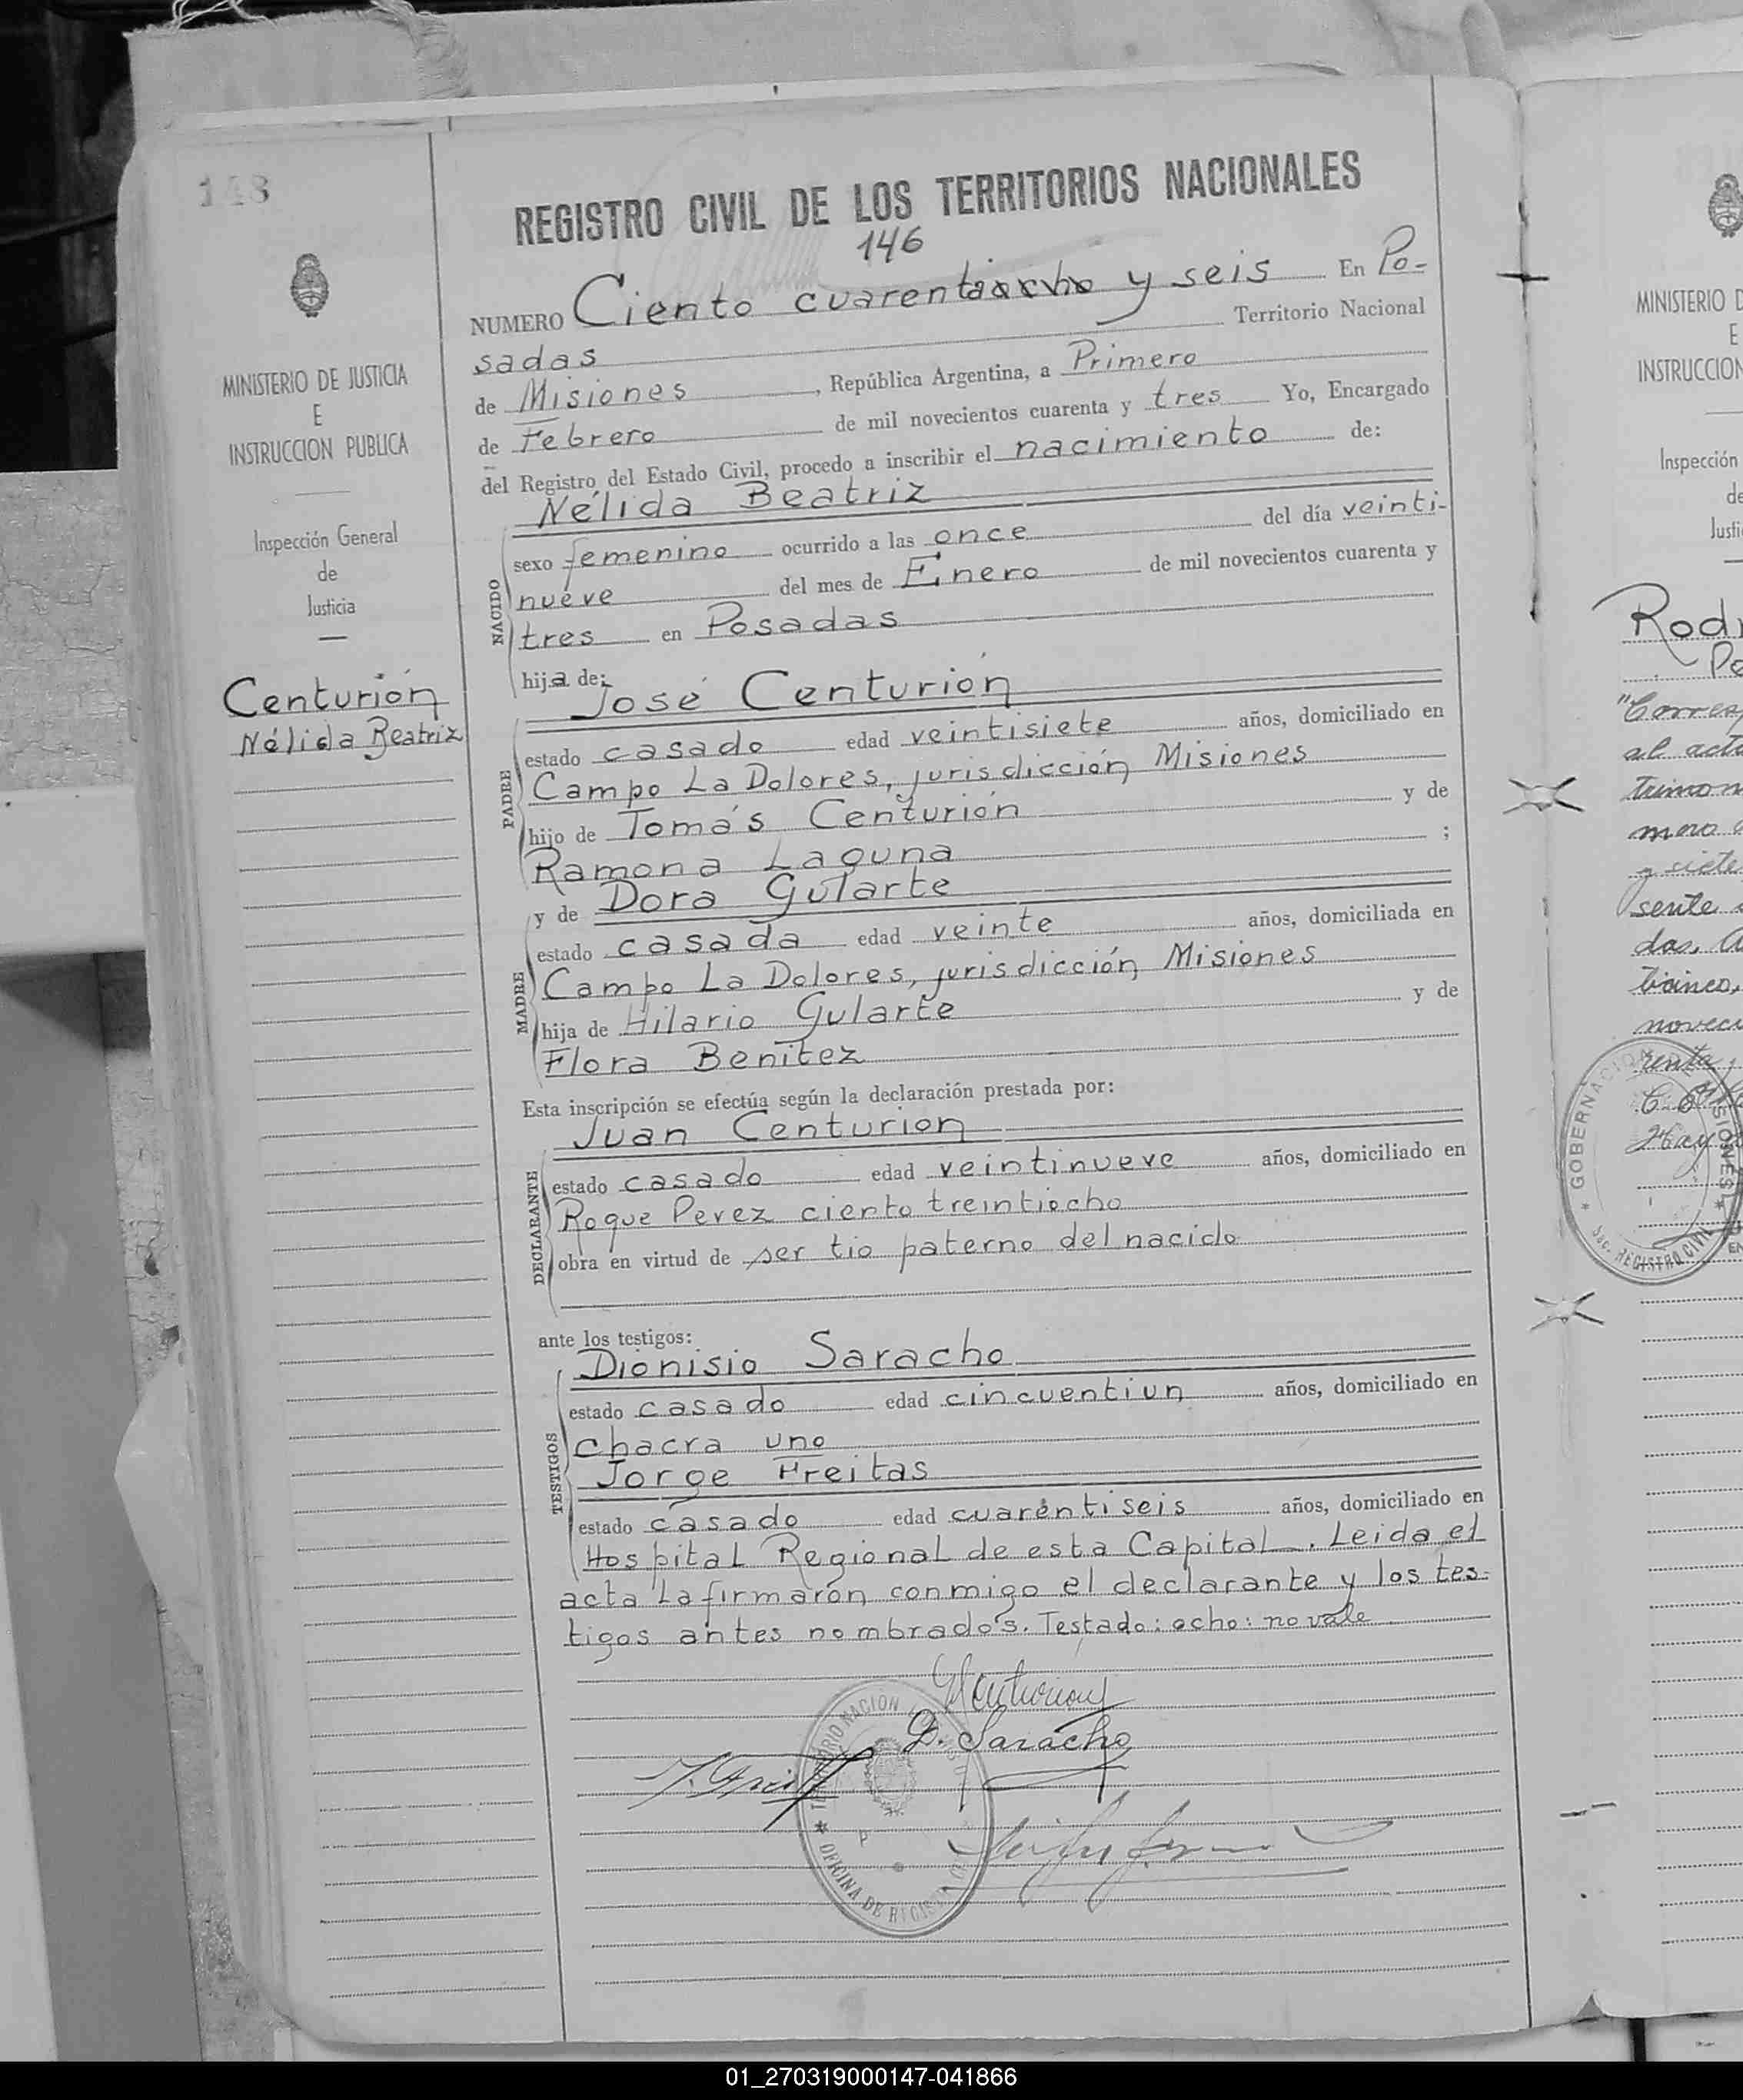 148
MINISTERIO DE JUSTICIA
E
INSTRUCCION PUBLICA
Inspección General
de
Justicia
Centurión
Nélida Beatriz
REGISTRO CIVIL DE LOS TERRITORIOS NACIONALES
146
NUMERO Ciento cuarentaiocho y seis En Po-
sadas Territorio Nacional
de Misiones, República Argentina, a Primero
de Febrero de mil novecientos cuarenta y tres Yo, Encargado
del Registro del Estado Civil, procedo a inscribir el nacimiento de:
Nélida Beatriz
NACIDO
sexo femenino ocurrido a las once del día veinti-
nueve del mes de Enero de mil novecientos cuarenta y
tres en Posadas
hija de:
José Centurión
PADRE
estado casado edad veintisiete años, domiciliado en
Campo La Dolores, jurisdicción Misiones
hijo de Tomás Centurión y de
Ramona Laguna ;
y de Dora Gularte
MADRE
estado casada edad veinte años, domiciliada en
Campo La Dolores, jurisdicción Misiones
hija de Hilario Gularte y de
Flora Benitez
Esta inscripción se efectúa según la declaración prestada por:
Juan Centurion
DECLARANTE
estado casado edad veintinueve años, domiciliado en
Roque Perez ciento treintiocho
obra en virtud de ser tio paterno del nacido
ante los testigos:
Dionisio Saracho
TESTIGOS
estado casado edad cincuentiun años, domiciliado en
Chacra uno
Jorge Freitas
estado casado edad cuarentiseis años, domiciliado en
Hospital Regional de esta Capital. Leida el
acta la firmaron conmigo el declarante y los tes-
tigos antes nombrados. Testado: ocho: no vale
Centurion
D. Saracho
J. Freitas
OFICINA DE REGISTRO
MINISTERIO D
E
INSTRUCCION
Inspección
de
Justi
Rodr
Po
"Corresp
al acta
trimon
mero
y siete
sente
das,
noveci
renta
GOBERNACION
MISIONES
Sec. REGISTRO CIVIL
01_270319000147-041866